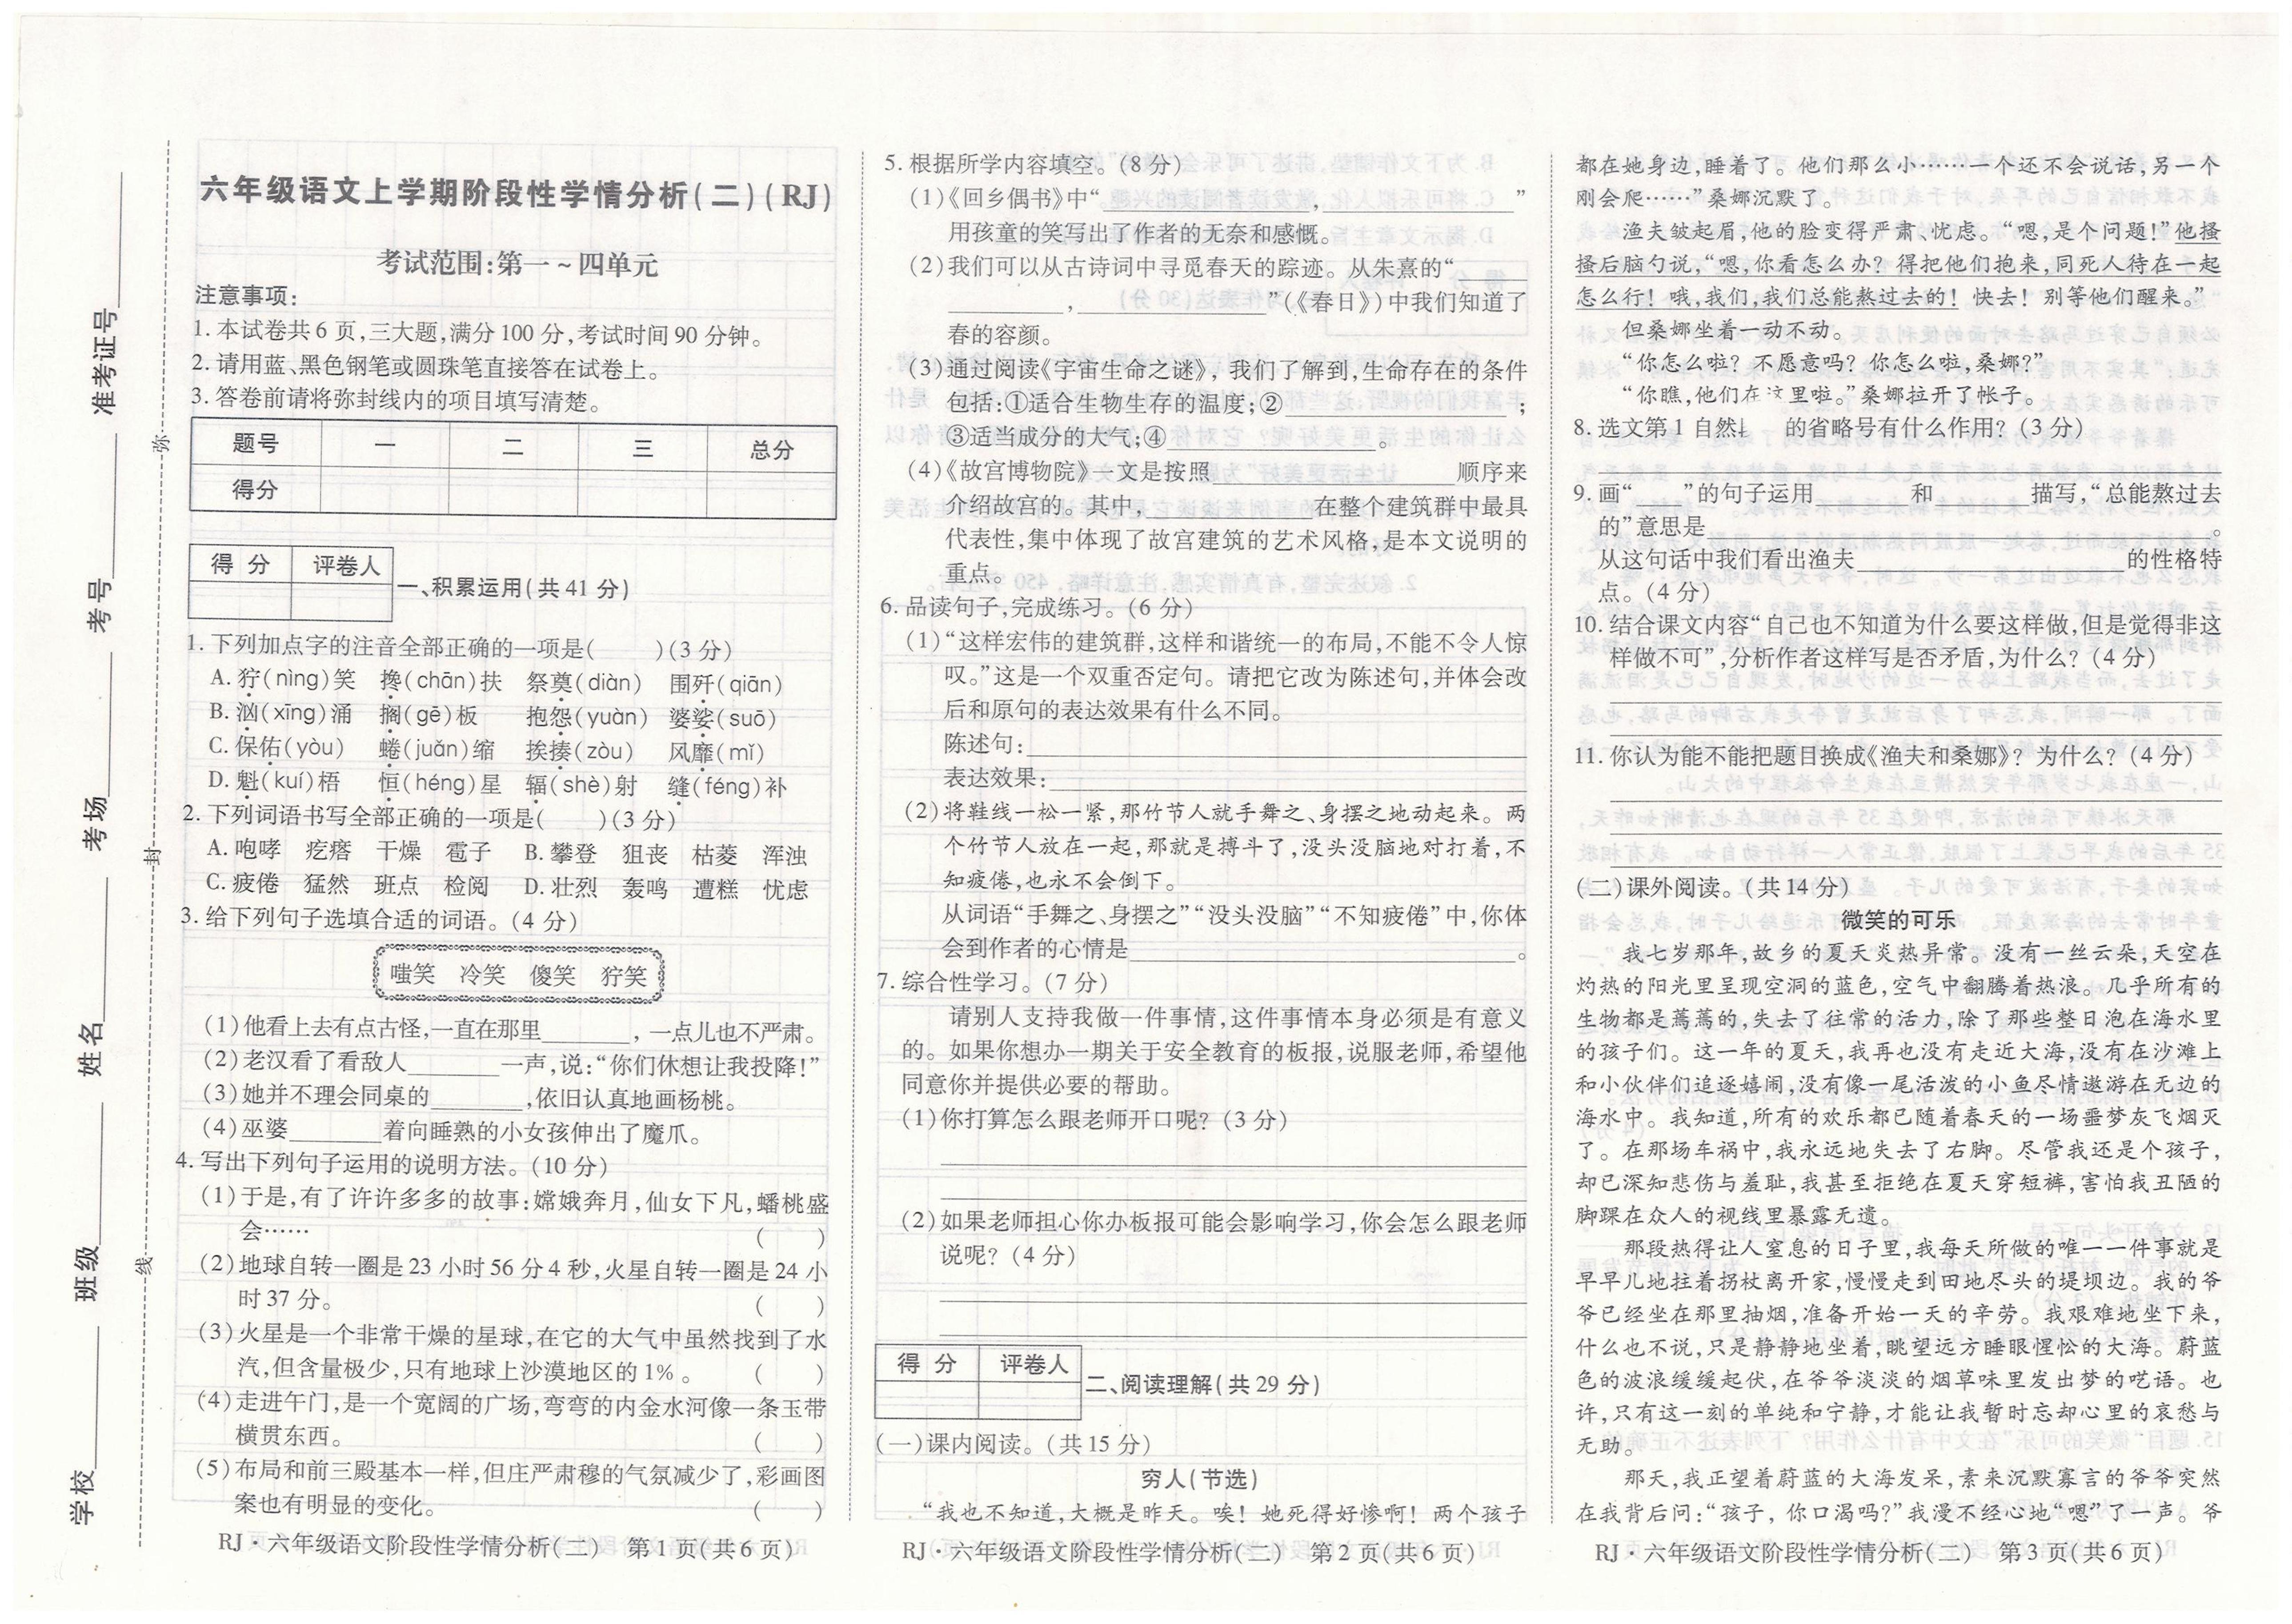 学校 班级 姓名 考场 考号 准考证号
弥 封 线
六年级语文上学期阶段性学情分析(二)(RJ)
考试范围:第一~四单元
注意事项:
1. 本试卷共6页,三大题,满分100分,考试时间90分钟。
2. 请用蓝、黑色钢笔或圆珠笔直接答在试卷上。
3. 答卷前请将弥封线内的项目填写清楚。
题号 一 二 三 总分
得分
得 分 评卷人
一、积累运用(共41分)
1. 下列加点字的注音全部正确的一项是( )(3分)
A. 狞(nìng)笑 搀(chān)扶 祭奠(diàn) 围歼(qiān)
B. 汹(xīng)涌 搁(gē)板 抱怨(yuàn) 婆娑(suō)
C. 保佑(yòu) 蜷(juǎn)缩 挨揍(zòu) 风靡(mǐ)
D. 魁(kuí)梧 恒(héng)星 辐(shè)射 缝(féng)补
2. 下列词语书写全部正确的一项是( )(3分)
A. 咆哮 疙瘩 干燥 雹子 B. 攀登 狙丧 枯菱 浑浊
C. 疲倦 猛然 班点 检阅 D. 壮烈 轰鸣 遭糕 忧虑
3. 给下列句子选填合适的词语。(4分)
嗤笑 冷笑 傻笑 狞笑
(1)他看上去有点古怪,一直在那里________,一点儿也不严肃。
(2)老汉看了看敌人________一声,说:“你们休想让我投降!”
(3)她并不理会同桌的________,依旧认真地画杨桃。
(4)巫婆________着向睡熟的小女孩伸出了魔爪。
4. 写出下列句子运用的说明方法。(10分)
(1)于是,有了许许多多的故事:嫦娥奔月,仙女下凡,蟠桃盛
会…… ( )
(2)地球自转一圈是23小时56分4秒,火星自转一圈是24小
时37分。 ( )
(3)火星是一个非常干燥的星球,在它的大气中虽然找到了水
汽,但含量极少,只有地球上沙漠地区的1%。 ( )
(4)走进午门,是一个宽阔的广场,弯弯的内金水河像一条玉带
横贯东西。 ( )
(5)布局和前三殿基本一样,但庄严肃穆的气氛减少了,彩画图
案也有明显的变化。 ( )
RJ·六年级语文阶段性学情分析(二) 第1页(共6页)
5. 根据所学内容填空。(8分)
(1)《回乡偶书》中“________,________”
用孩童的笑写出了作者的无奈和感慨。
(2)我们可以从古诗词中寻觅春天的踪迹。从朱熹的“____
________,________”(《春日》)中我们知道了
春的容颜。
(3)通过阅读《宇宙生命之谜》,我们了解到,生命存在的条件
包括:①适合生物生存的温度;②________;
③适当成分的大气;④________。
(4)《故宫博物院》一文是按照________顺序来
介绍故宫的。其中,________在整个建筑群中最具
代表性,集中体现了故宫建筑的艺术风格,是本文说明的
重点。
6. 品读句子,完成练习。(6分)
(1)“这样宏伟的建筑群,这样和谐统一的布局,不能不令人惊
叹。”这是一个双重否定句。请把它改为陈述句,并体会改
后和原句的表达效果有什么不同。
陈述句:________
表达效果:________
(2)将鞋线一松一紧,那竹节人就手舞之、身摆之地动起来。两
个竹节人放在一起,那就是搏斗了,没头没脑地对打着,不
知疲倦,也永不会倒下。
从词语“手舞之、身摆之”“没头没脑”“不知疲倦”中,你体
会到作者的心情是________。
7. 综合性学习。(7分)
请别人支持我做一件事情,这件事情本身必须是有意义
的。如果你想办一期关于安全教育的板报,说服老师,希望他
同意你并提供必要的帮助。
(1)你打算怎么跟老师开口呢?(3分)
(2)如果老师担心你办板报可能会影响学习,你会怎么跟老师
说呢?(4分)
得 分 评卷人
二、阅读理解(共29分)
(一)课内阅读。(共15分)
穷人(节选)
“我也不知道,大概是昨天。唉!她死得好惨啊!两个孩子
RJ·六年级语文阶段性学情分析(二) 第2页(共6页)
都在她身边,睡着了。他们那么小……一个还不会说话,另一个
刚会爬……”桑娜沉默了。
渔夫皱起眉,他的脸变得严肃、忧虑。“嗯,是个问题!”他搔
搔后脑勺说,“嗯,你看怎么办?得把他们抱来,同死人待在一起
怎么行!哦,我们,我们总能熬过去的!快去!别等他们醒来。”
但桑娜坐着一动不动。
“你怎么啦?不愿意吗?你怎么啦,桑娜?”
“你瞧,他们在这里啦。”桑娜拉开了帐子。
8. 选文第1自然 的省略号有什么作用?(3分)
9. 画“ ”的句子运用________和________描写,“总能熬过去
的”意思是________。
从这句话中我们看出渔夫________的性格特
点。(4分)
10. 结合课文内容“自己也不知道为什么要这样做,但是觉得非这
样做不可”,分析作者这样写是否矛盾,为什么?(4分)
11. 你认为能不能把题目换成《渔夫和桑娜》?为什么?(4分)
(二)课外阅读。(共14分)
微笑的可乐
我七岁那年,故乡的夏天炎热异常。没有一丝云朵,天空在
灼热的阳光里呈现空洞的蓝色,空气中翻腾着热浪。几乎所有的
生物都是蔫蔫的,失去了往常的活力,除了那些整日泡在海水里
的孩子们。这一年的夏天,我再也没有走近大海,没有在沙滩上
和小伙伴们追逐嬉闹,没有像一尾活泼的小鱼尽情遨游在无边的
海水中。我知道,所有的欢乐都已随着春天的一场噩梦灰飞烟灭
了。在那场车祸中,我永远地失去了右脚。尽管我还是个孩子,
却已深知悲伤与羞耻,我甚至拒绝在夏天穿短裤,害怕我丑陋的
脚踝在众人的视线里暴露无遗。
那段热得让人窒息的日子里,我每天所做的唯一一件事就是
早早儿地拄着拐杖离开家,慢慢走到田地尽头的堤坝边。我的爷
爷已经坐在那里抽烟,准备开始一天的辛劳。我艰难地坐下来,
什么也不说,只是静静地坐着,眺望远方睡眼惺忪的大海。蔚蓝
色的波浪缓缓起伏,在爷爷淡淡的烟草味里发出梦的呓语。也
许,只有这一刻的单纯和宁静,才能让我暂时忘却心里的哀愁与
无助。
那天,我正望着蔚蓝的大海发呆,素来沉默寡言的爷爷突然
在我背后问:“孩子,你口渴吗?”我漫不经心地“嗯”了一声。爷
RJ·六年级语文阶段性学情分析(二) 第3页(共6页)